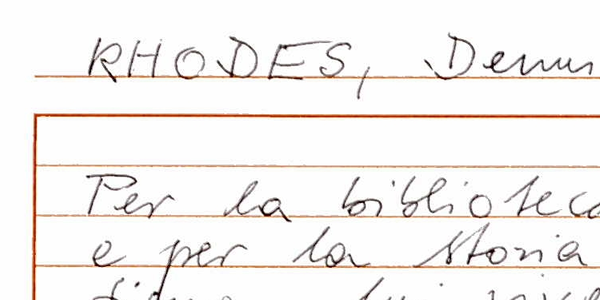 RHODES, Dennis
Per la biblioteca
e per la storia